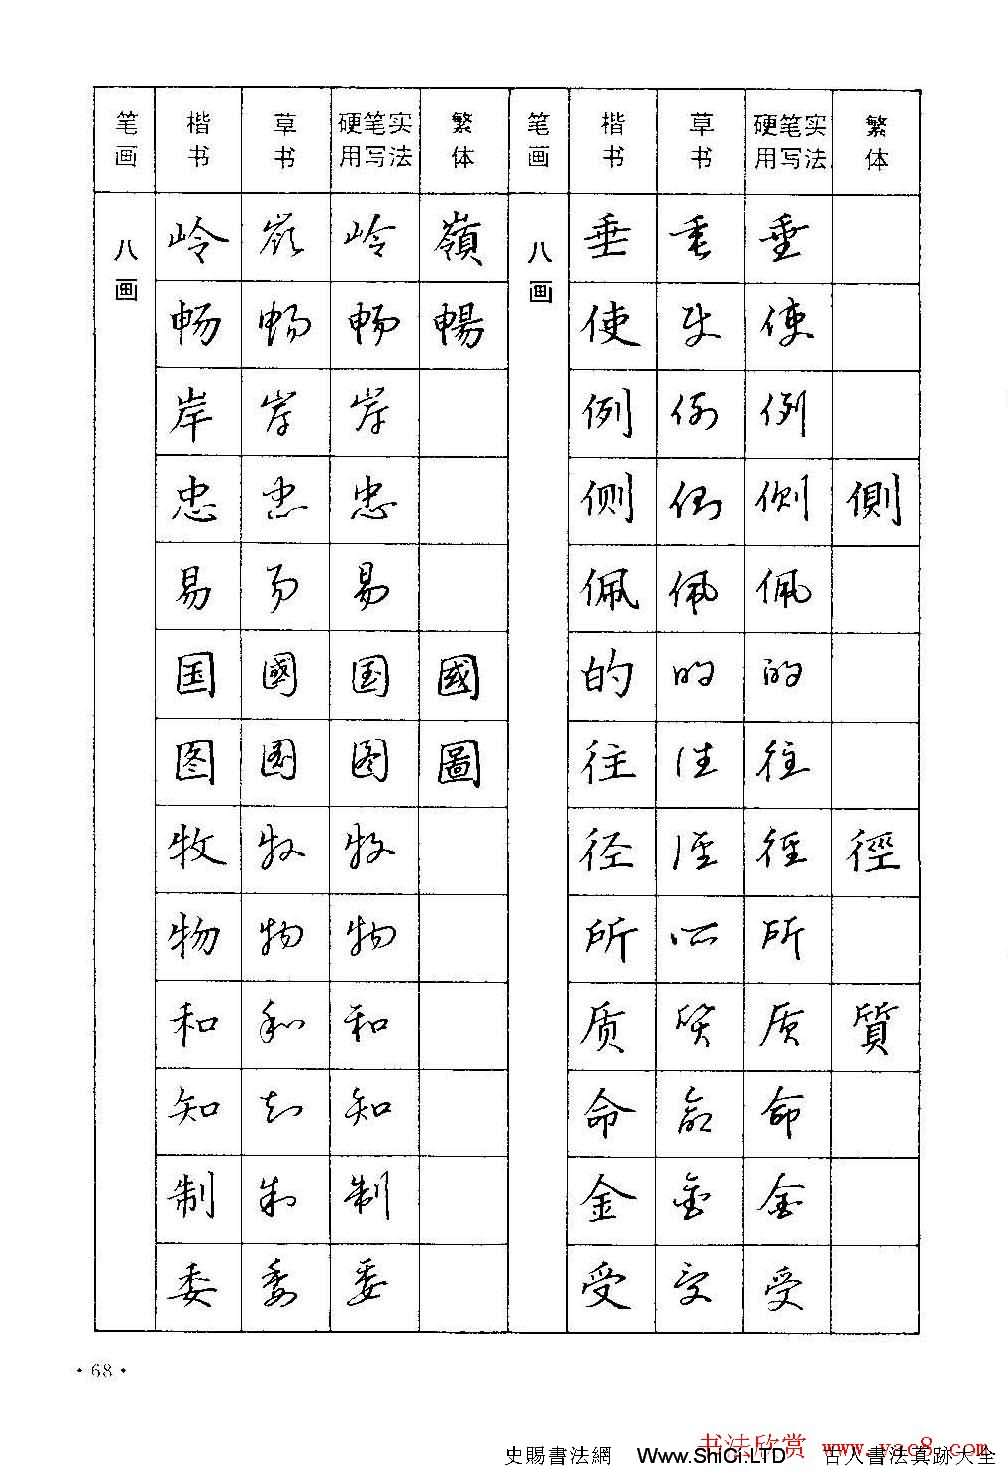 笔画 楷书 草书 硬笔实用写法 繁体 笔画 楷书 草书 硬笔实用写法 繁体
八画 岭 岭 岭 嶺 八画 垂 垂 垂
畅 畅 畅 暢 使 使 使
岸 岸 岸 例 例 例
忠 忠 忠 侧 侧 侧 側
易 易 易 佩 佩 佩
国 國 国 國 的 的 的
图 图 图 圖 往 往 往
牧 牧 牧 径 径 径 徑
物 物 物 所 所 所
和 和 和 质 质 质 質
知 知 知 命 命 命
制 制 制 金 金 金
委 委 委 受 受 受
·68·
书法欣赏 www.yac8.com
史賜書法網 Www.ShiCi.LTD 古人書法真跡大全